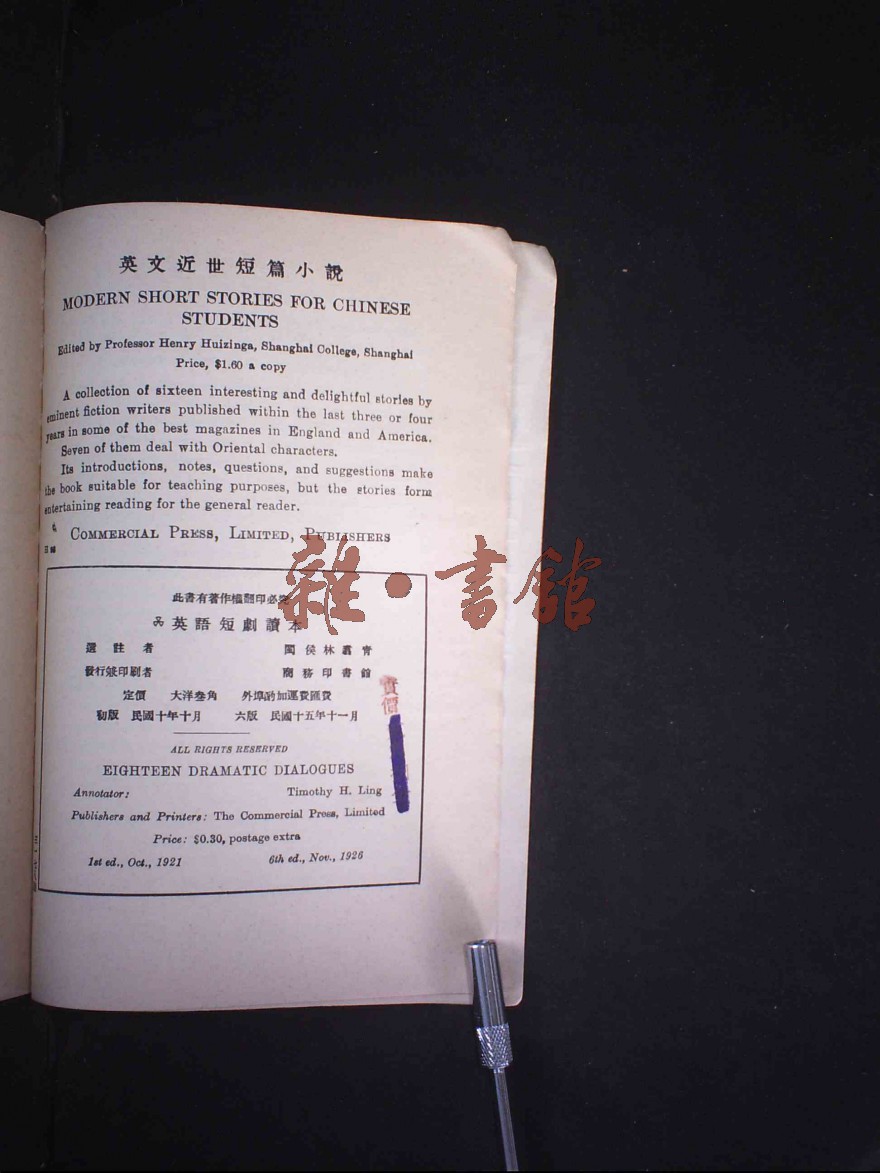 英文近世短篇小說
MODERN SHORT STORIES FOR CHINESE
STUDENTS
Edited by Professor Henry Huizinga, Shanghai College, Shanghai
Price, $1.60 a copy
A collection of sixteen interesting and delightful stories by
eminent fiction writers published within the last three or four
years in some of the best magazines in England and America.
Seven of them deal with Oriental characters.
Its introductions, notes, questions, and suggestions make
the book suitable for teaching purposes, but the stories form
entertaining reading for the general reader.
COMMERCIAL PRESS, LIMITED, PUBLISHERS
雜·書館
此書有著作權翻印必究
英語短劇讀本
選註者 閩侯林 青
發行兼印刷者 商務印書館
定價 大洋叁角 外埠酌加運費匯費
初版 民國十年十月 六版 民國十五年十一月
實價
ALL RIGHTS RESERVED
EIGHTEEN DRAMATIC DIALOGUES
Annotator: Timothy H. Ling
Publishers and Printers: The Commercial Press, Limited
Price: $0.30, postage extra
1st ed., Oct., 1921 6th ed., Nov., 1926